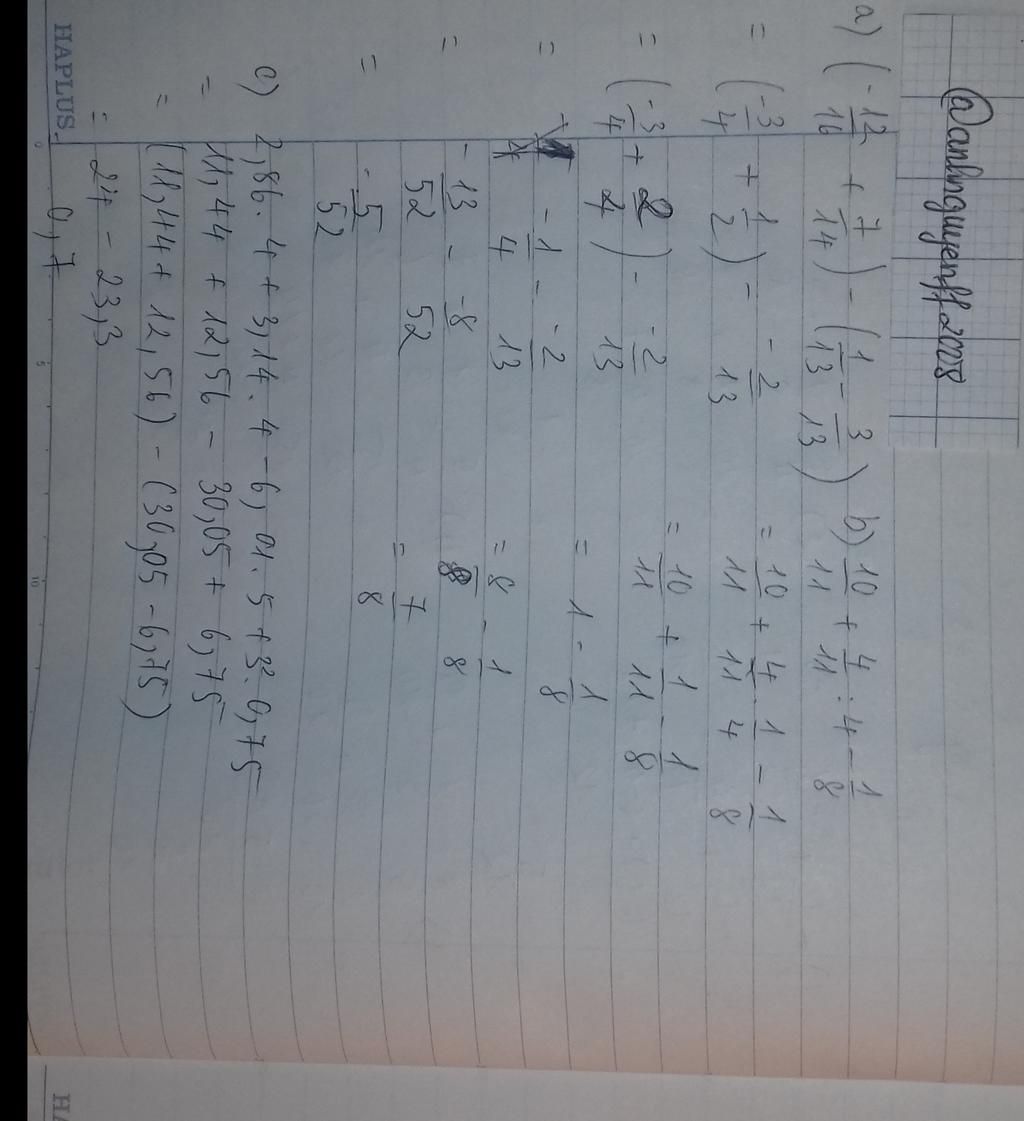 @anhnguyenff2008
a) (-12/16 + 7/14) - (1/13 - 3/13)
= (-3/4 + 1/2) - -2/13
= (-3/4 + 2/4) - -2/13
= -1/4 - -2/13
= -13/52 - -8/52
= -5/52
b) 10/11 + 4/11 : 4 - 1/8
= 10/11 + 4/11 . 1/4 - 1/8
= 10/11 + 1/11 - 1/8
= 1 - 1/8
= 8/8 - 1/8
= 7/8
c) 2,86 . 4 + 3,14 . 4 - 6,01 . 5 + 3² . 0,75
= 11,44 + 12,56 - 30,05 + 6,75
= (11,44 + 12,56) - (30,05 - 6,75)
= 24 - 23,3
0,7
HAPLUS
0 5 10
HA